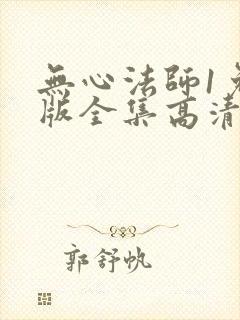 無心法師1
版全集高清
郭舒帆